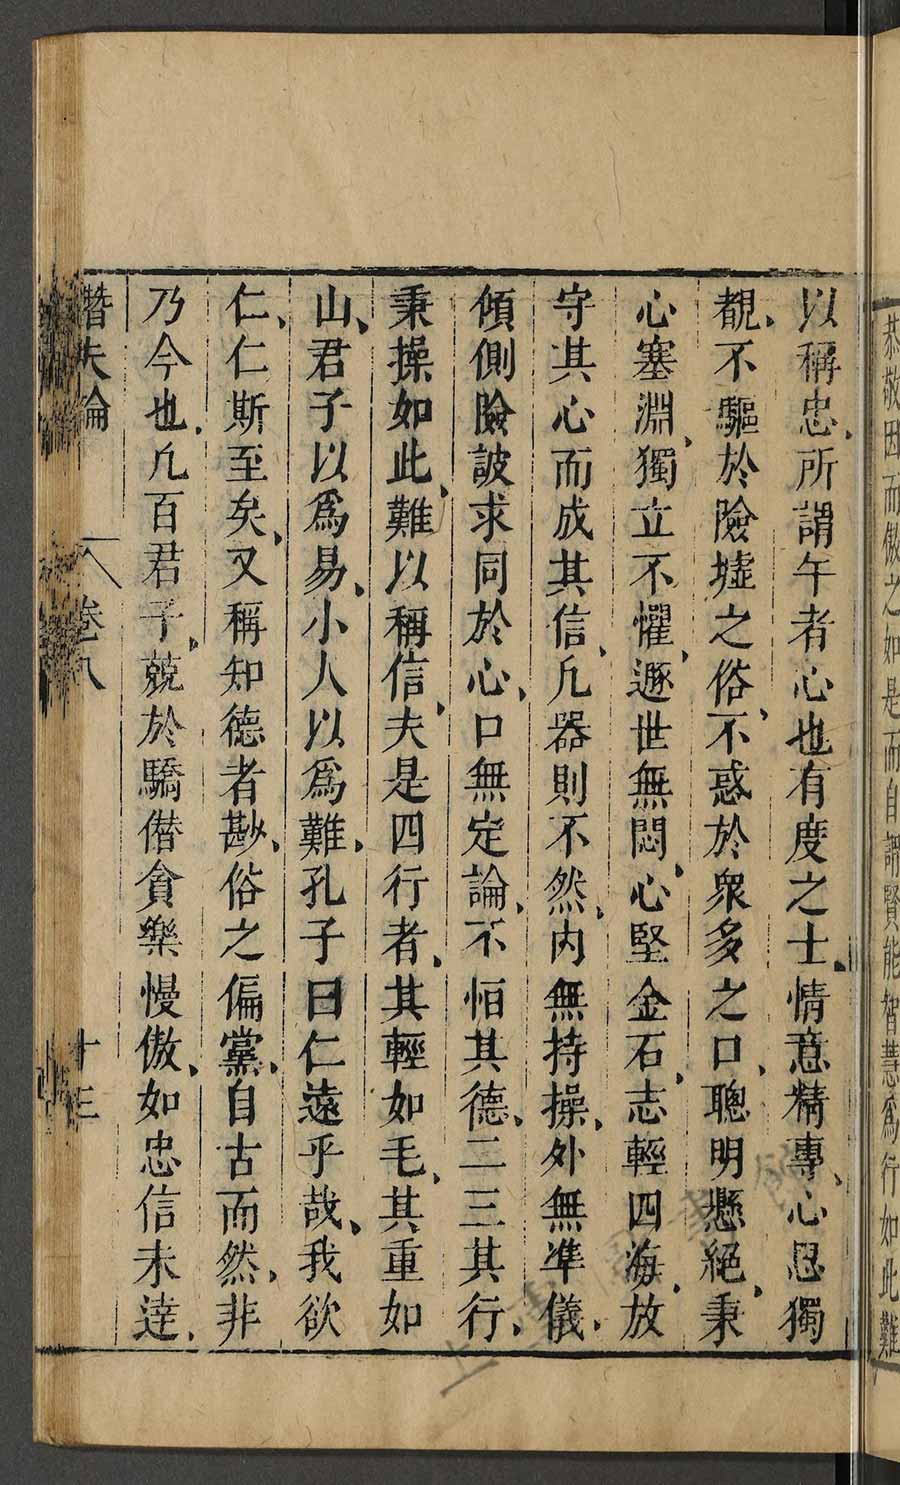 恭敬因而傲之如是而自謂賢能智慧為行如此難
以稱忠、所謂午者心也有度之士、情意精專、心思獨
覩、不驅於險墟之俗、不惑於衆多之口、聰明懸絕、秉
心塞淵、獨立不懼、遯世無悶、心堅金石、志輕四海、放
守其心而成其信、凡器則不然、内無持操、外無準儀、
傾側險詖求同於心、口無定論、不恒其德、二三其行、
秉操如此、難以稱信、夫是四行者、其輕如毛、其重如
山、君子以爲易、小人以爲難、孔子曰仁遠乎哉、我欲
仁、仁斯至矣、又稱知德者尠、俗之偏黨、自古而然、非
乃今也、凡百君子、兢於驕僭貪樂慢傲、如忠信未達、
潜夫論 卷八 十三